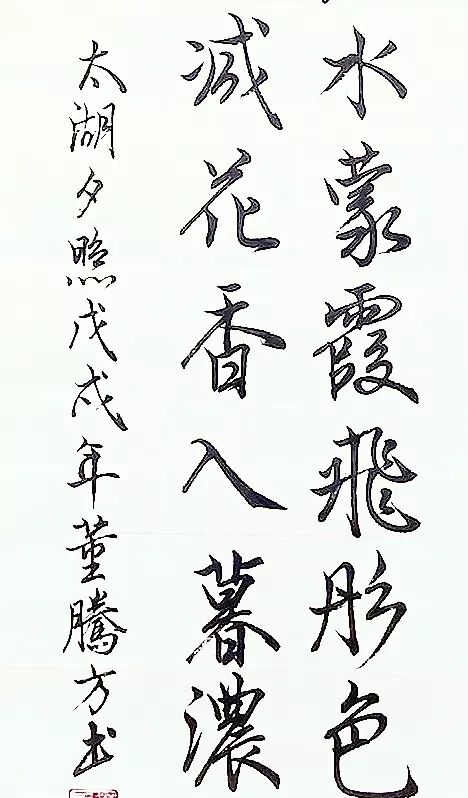 水蒙霞飛彤色
減花香入暮濃
太湖夕照戊戌年董騰方书